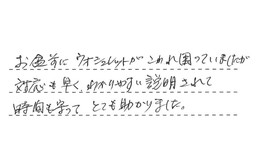 お盆前にウォシュレットがこわれ困っていましたが
対応も早く、わかりやすい説明されて
時間も守って とても助かりました。